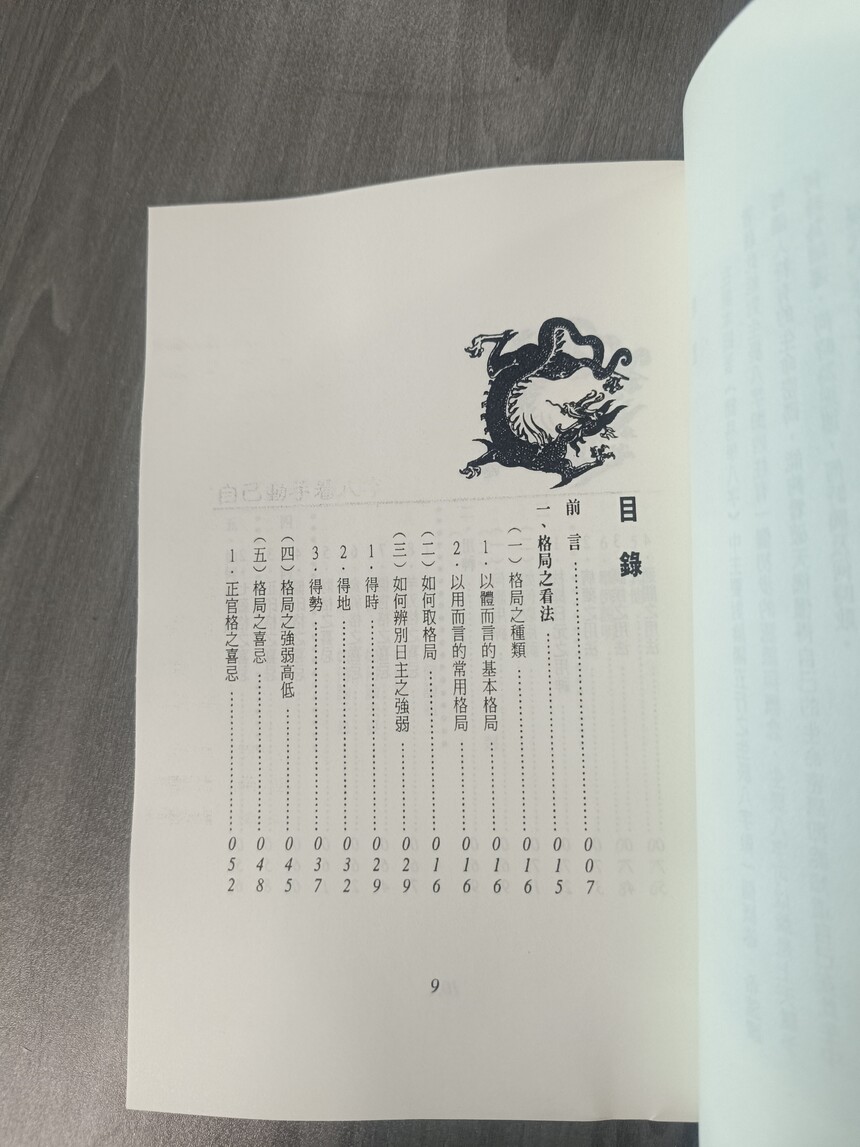 目錄
前言……007
一、格局之看法……015
（一）格局之種類……016
1．以體而言的基本格局……016
2．以用而言的常用格局……016
（二）如何取格局……016
（三）如何辨別日主之強弱……029
1．得時……029
2．得地……032
3．得勢……037
（四）格局之強弱高低……045
（五）格局之喜忌……048
1．正官格之喜忌……052
9